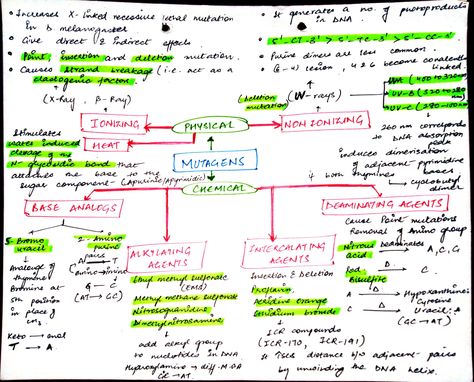 • Increases X-linked recessive lethal mutation
in D. melanogaster
• Give direct & indirect effects.
• Point, insertion and deletion mutation.
• Causes strand breakage (i.e. act as a
clastogenic factor.
(X-Ray, β-Ray)
IONIZING
HEAT
Stimulates
water induced
cleavage of the
N-glycosidic bond that
attaches the base to the
sugar component - (Apurinic/Apyrimidic)
PHYSICAL
MUTAGENS
CHEMICAL
• It generates a no. of photoproducts
in DNA.
5'-CT-3' > 5'-TC-3' > 5'-CC-3'
• Purine dimers are less
common.
(6-4) lesion, 4 & 6 become covalently
linked
(deletion
mutation)
(UV-rays)
NON IONIZING
UV-B
UV-C
260 nm corresponds
to DNA absorption
peak
induces dimerisation
of adjacent pyrimidine
bases
cyclobutyl
dimer
BASE ANALOGS
5-Bromo
uracil
Analogue of
thymine
Bromine at
5th position
in place of
CH3
Keto → enol
T → A
2-Amino
purine
pairs T
amino-imino
G — C
(AT → GC)
ALKYLATING
AGENTS
Ethyl methyl sulfonate
(EMS)
Methyl methane sulfonate
Nitrosoguanidine
Dimethylnitrosamine
add alkyl group
to nucleotides in DNA
GC → AT.
INTERCALATING
AGENTS
Insertion & Deletion
Proflavin
Acridine Orange
Ethidium bromide
ICR compounds
(ICR-170, ICR-191)
distance b/w adjacent pairs
by unwinding the DNA helix.
DEAMINATING AGENTS
Cause Point mutations
Removal of Amino group
Nitrous
acid
Deaminates
A, C, G
Sod.
Bisulfite
C.
A → Hypoxanthine:
Cytosine
C → Uracil: A
(GC → AT)